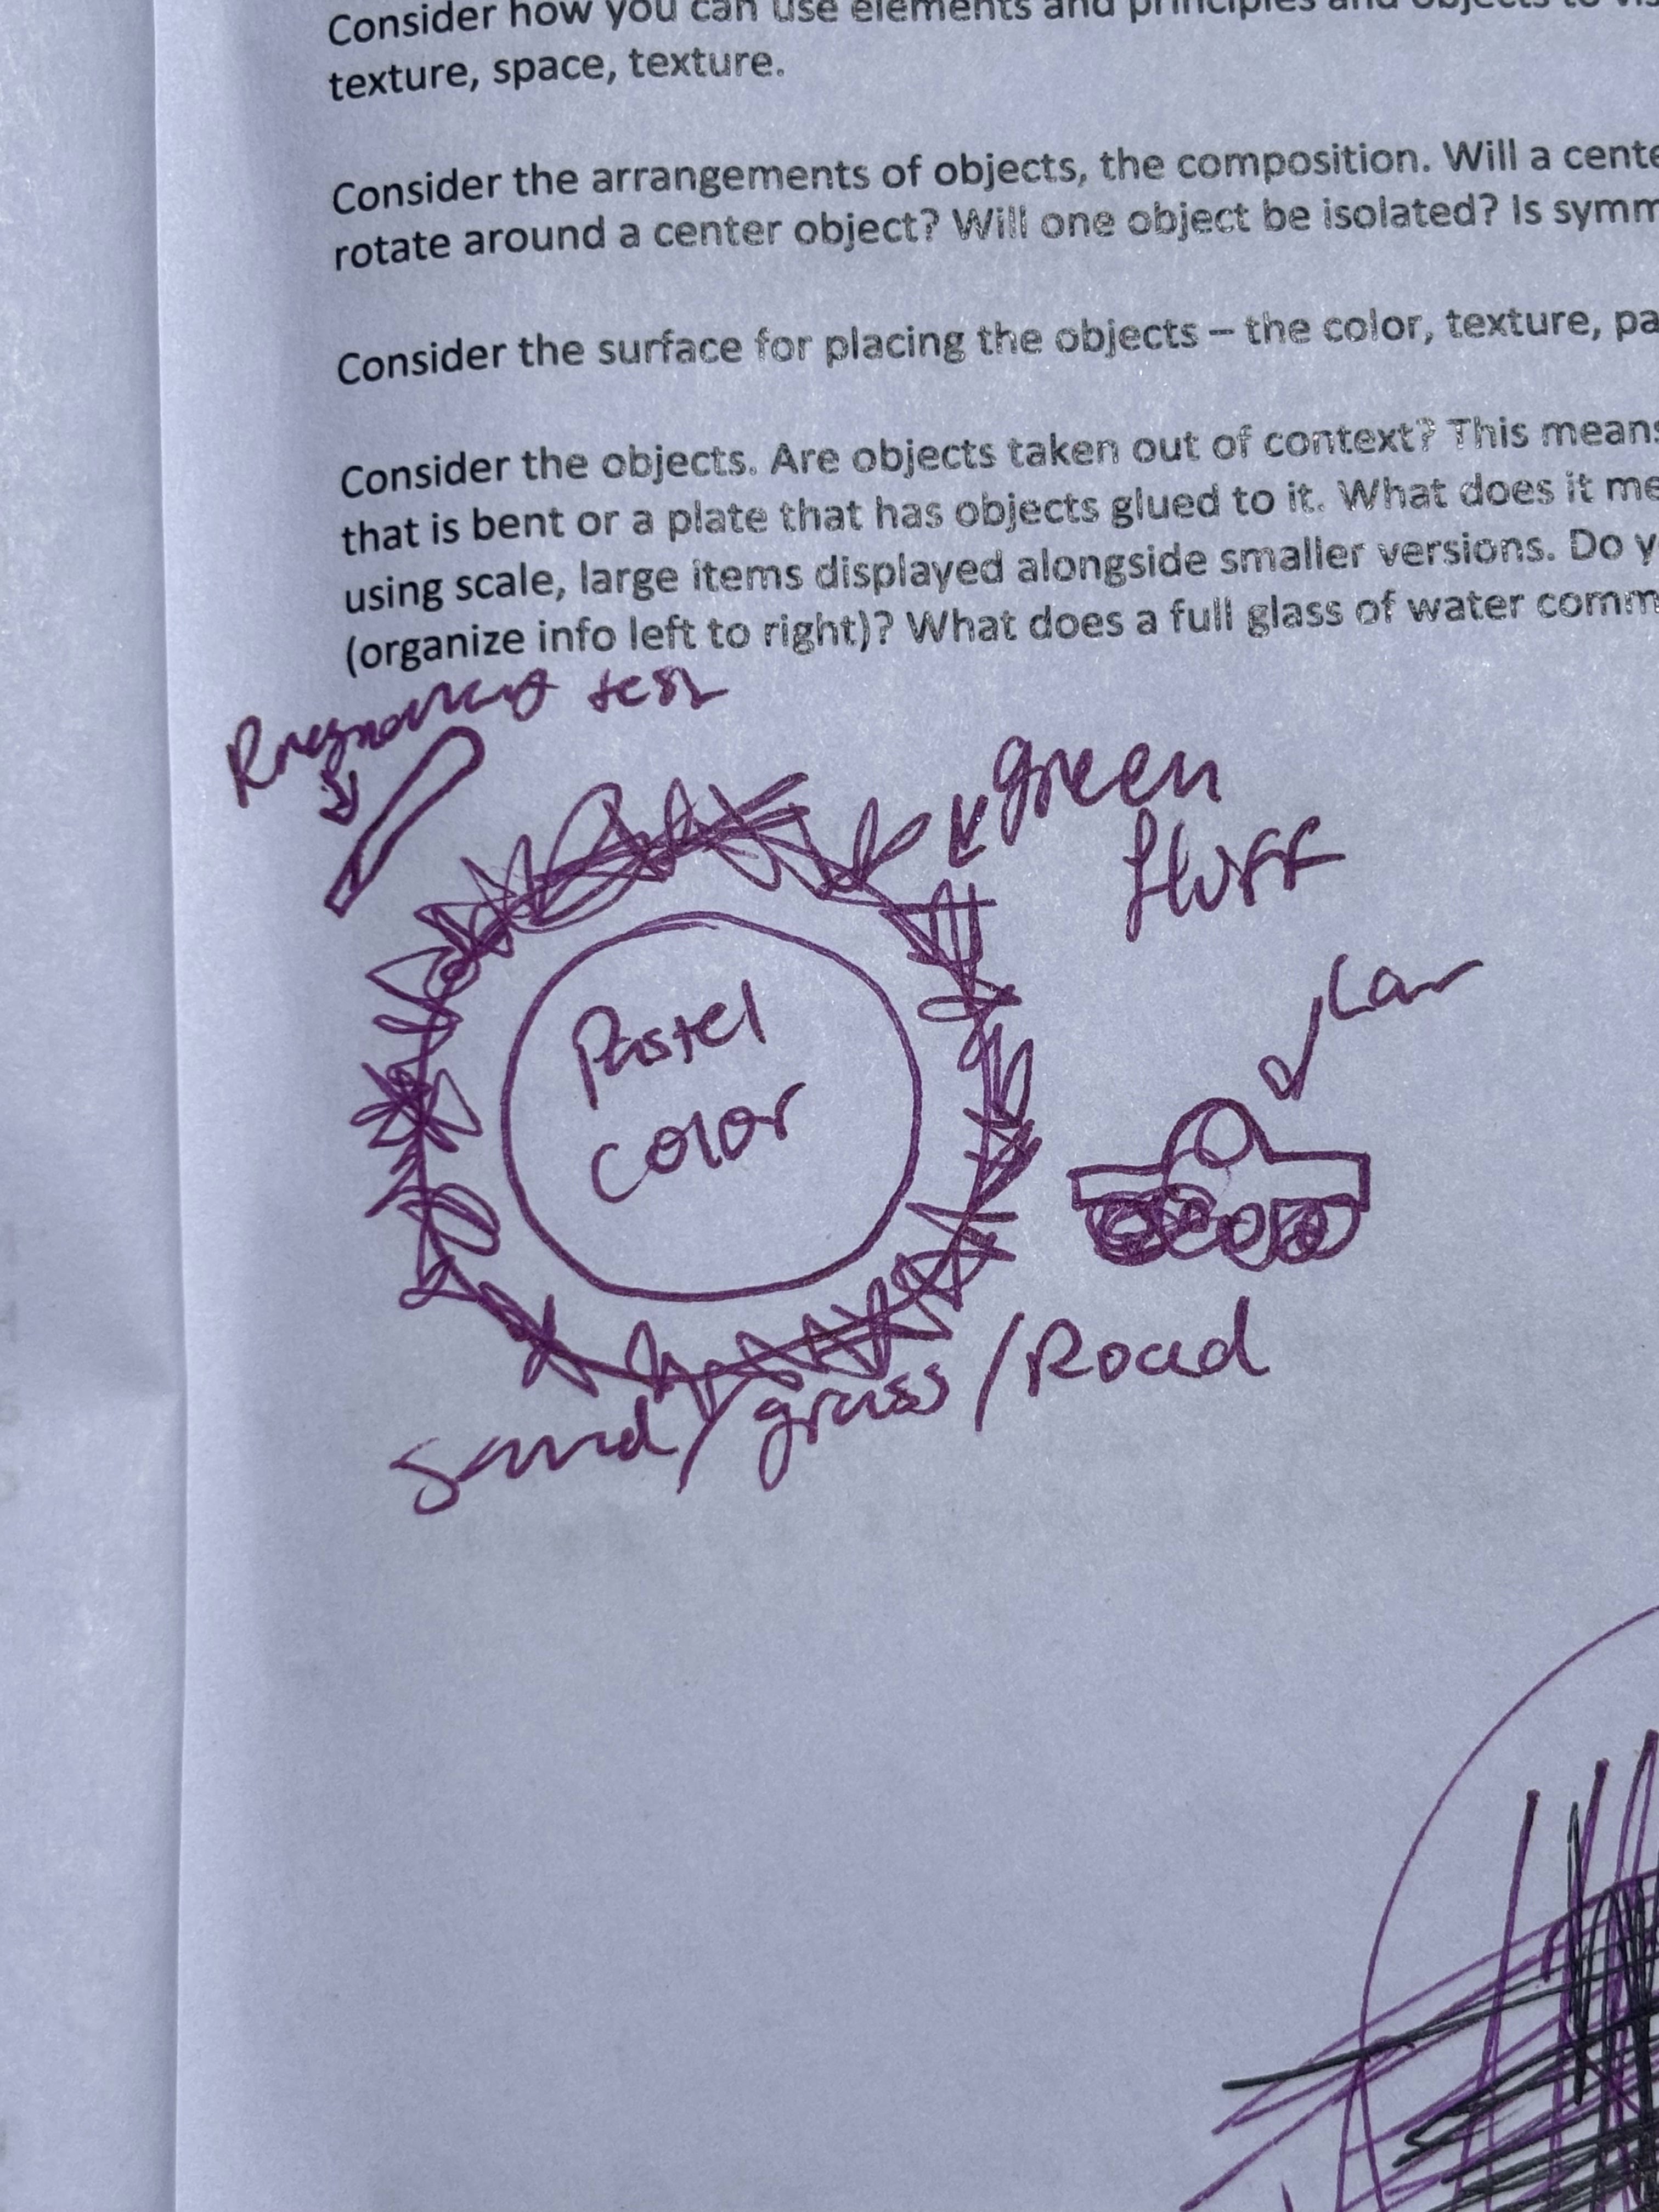 Consider how you can use elements and principles and objects to
texture, space, texture.
Consider the arrangements of objects, the composition. Will a cente
rotate around a center object? Will one object be isolated? Is symm
Consider the surface for placing the objects – the color, texture, pa
Consider the objects. Are objects taken out of context? This means
that is bent or a plate that has objects glued to it. What does it me
using scale, large items displayed alongside smaller versions. Do y
(organize info left to right)? What does a full glass of water comm
Pregnancy test
green
fluff
Car
Pastel
color
Sand/grass/Road